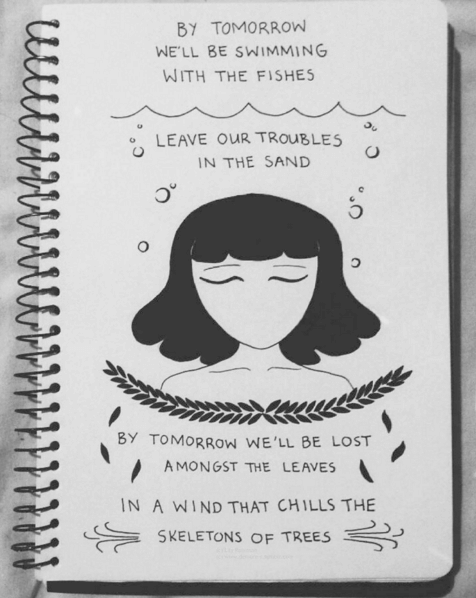 BY TOMORROW
WE'LL BE SWIMMING
WITH THE FISHES
LEAVE OUR TROUBLES
IN THE SAND
BY TOMORROW WE'LL BE LOST
AMONGST THE LEAVES
IN A WIND THAT CHILLS THE
SKELETONS OF TREES